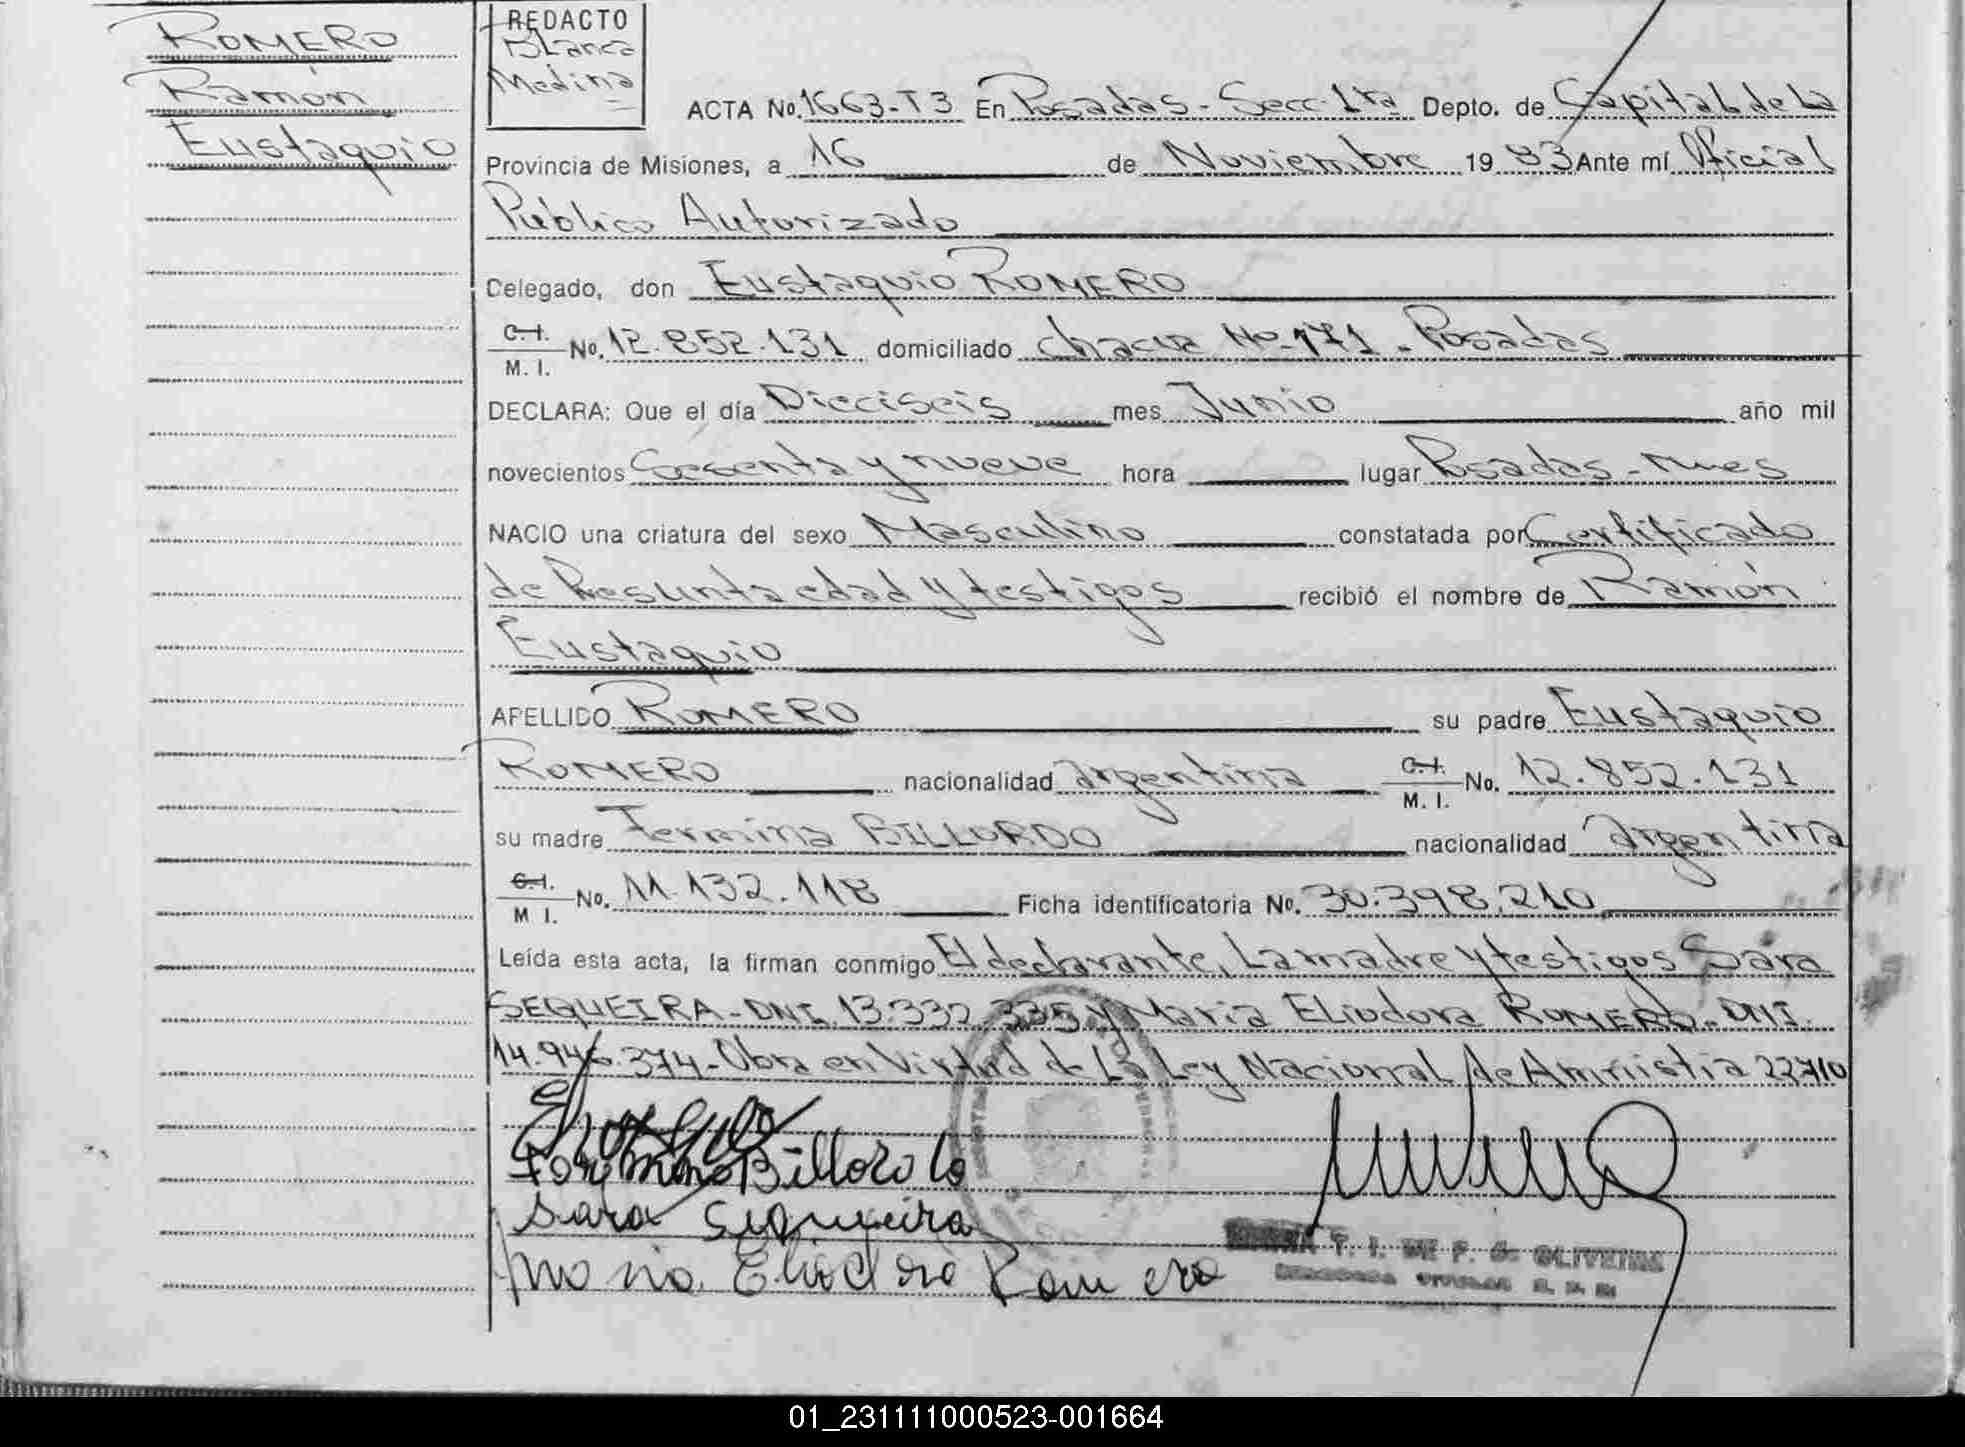 ROMERO
Ramón
Eustaquio
REDACTO
Blanca
Medina
ACTA No. 1663-T3 En Posadas - Secc. 1ra Depto. de Capital de la
Provincia de Misiones, a 16 de Noviembre 1983 Ante mí Oficial
Público Autorizado
Celegado, don Eustaquio ROMERO
C.I. / M. I. No. 12.852.131 domiciliado chacra No 171 - Posadas
DECLARA: Que el día Dieciseis mes Junio año mil
novecientos Sesenta y nueve hora lugar Posadas - Mnes
NACIO una criatura del sexo Masculino constatada por Certificado
de Presunta edad y testigos recibió el nombre de Ramón
Eustaquio
APELLIDO ROMERO su padre Eustaquio
ROMERO nacionalidad argentina C.I. / M. I. No. 12.852.131
su madre Fermina BILLORDO nacionalidad argentina
C.I. / M I. No. 11.132.118 Ficha identificatoria No. 30.398.210
Leída esta acta, la firman conmigo El declarante, La madre y testigos Sara
SEQUEIRA - DNI. 13.332.335 y Maria Eliodora ROMERO - DNI.
14.946.374 - Obra en Virtud de La Ley Nacional de Amnistia 22710
Fermina Billordo
Sara Sequeira
Maria Eliodora Romero
T. I. DE F. G. OLIVEIRA
01_231111000523-001664